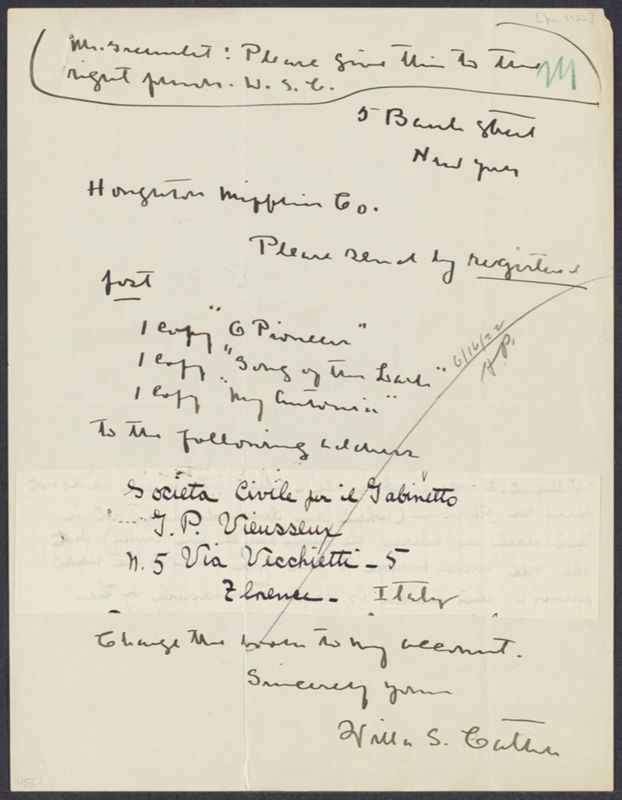 [Jun 1922]
Mr. Greenslet: Please give this to the
right person. W. S. C.
5 Bank Street
New York
Houghton Mifflin Co.
Please send by registered
post
1 copy "O Pioneers"
1 copy "Song of the Lark"
1 copy "My Antonia"
6/16/22
H.P.
to the following address
Società Civile per il Gabinetto
G. P. Vieusseux
N. 5 Via Vecchietti - 5
Florence - Italy
Charge the books to my account.
Sincerely yours
Willa S. Cather